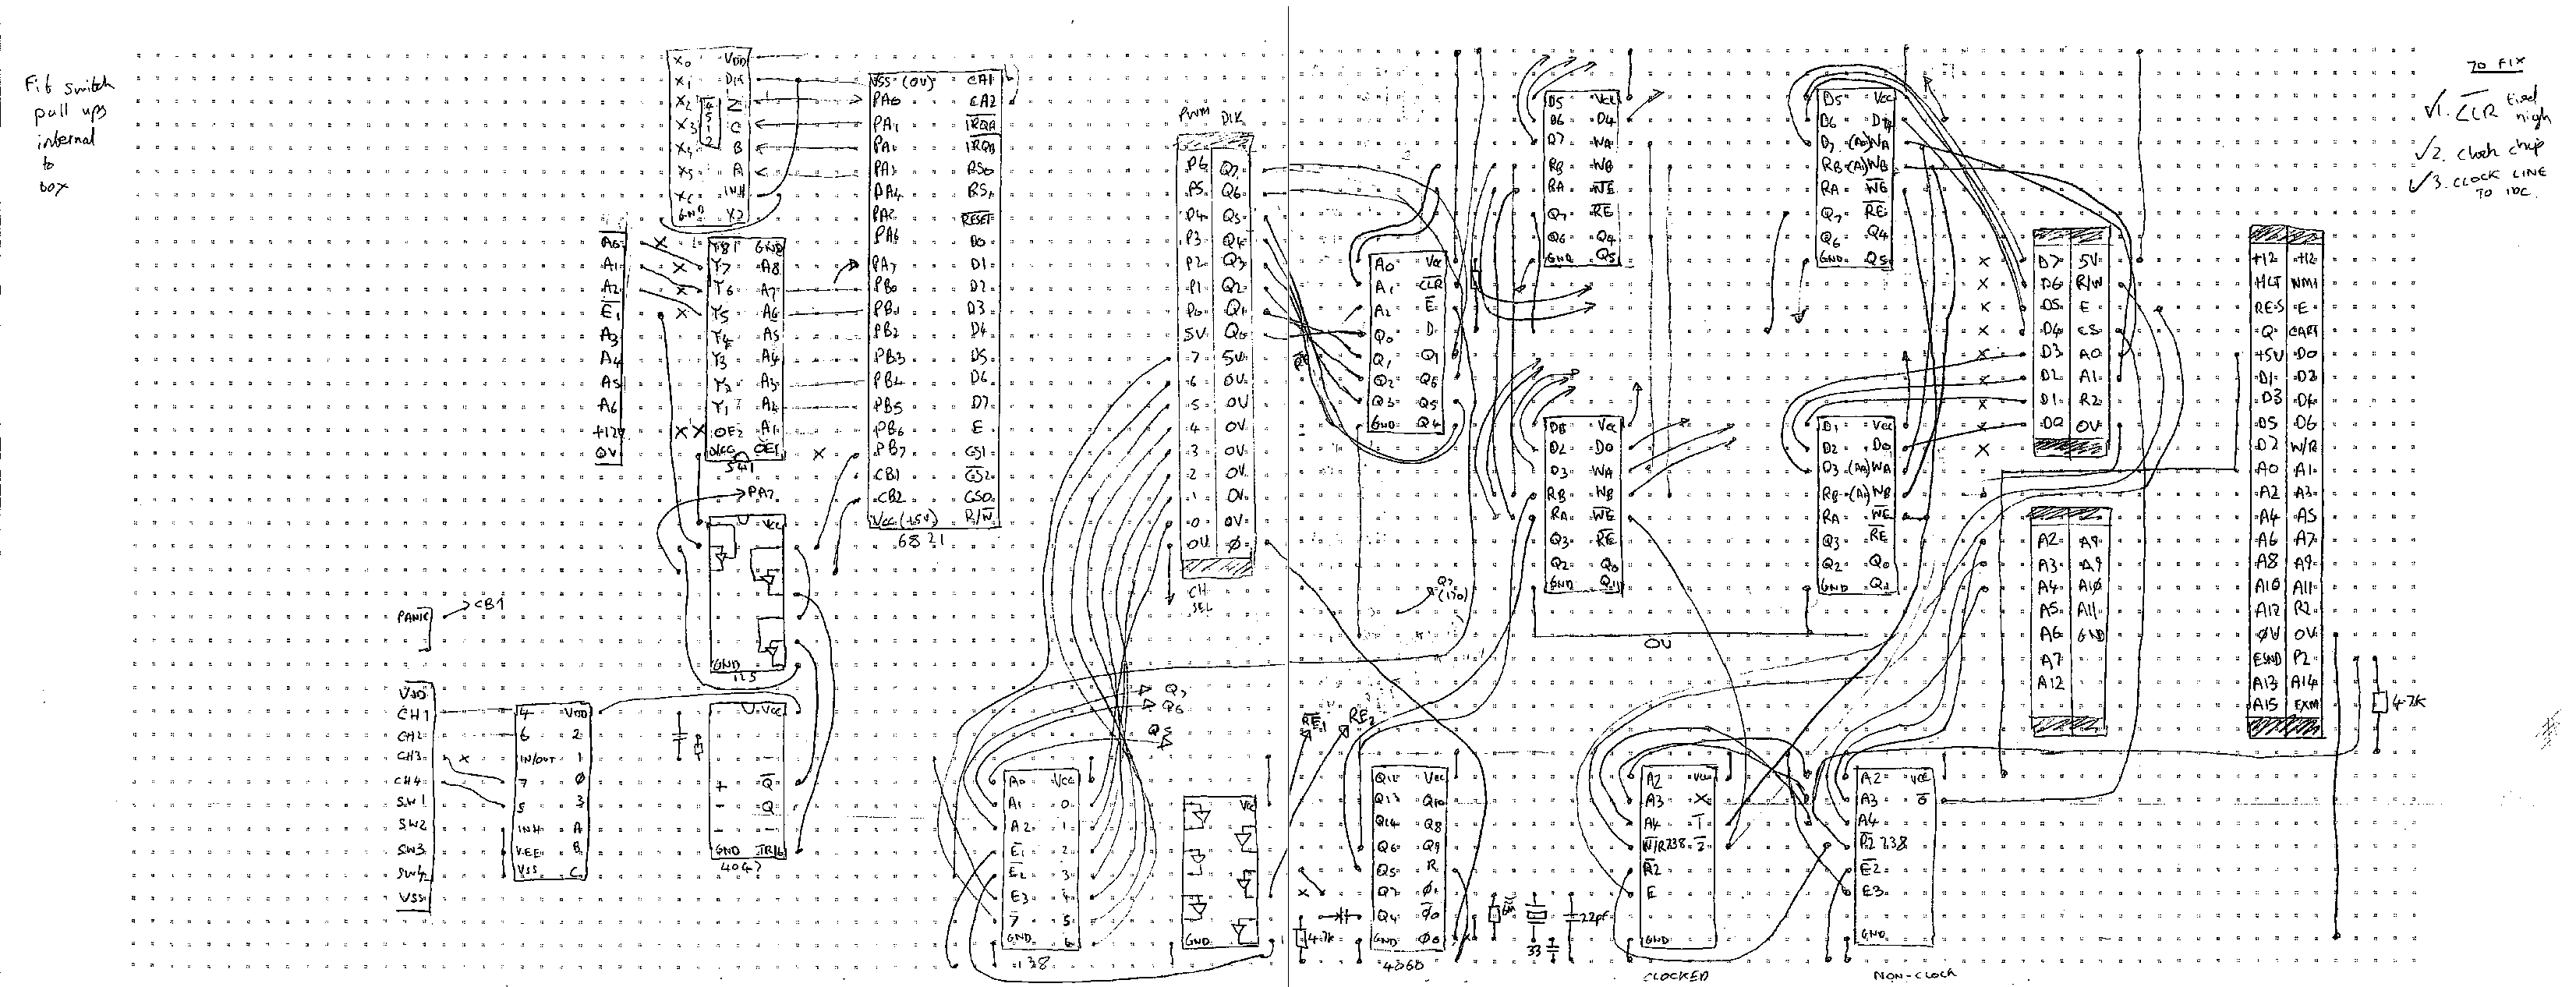 Fit switch
pull ups
internal
to
box
TO FIX
√1. CLR tied
high
√2. Clock chip
√3. CLOCK LINE
TO IDC.
X0 VDD
X1 Dis
X2 Z
X3 C
X4 B
X5 A
X6 INH
GND X7
4512
VSS (0V) CA1
PA0 CA2
PA1 IRQA
IRQB
RS0
PA4 RS1
RESET
PA6 D0
PA7 D1
PB0 D2
PB1 D3
PB2 D4
PB3 D5
PB4 D6
PB5 D7
PB6 E
PB7 CS1
CB1 CS2
CB2 CS0
VCC (+5V) R/W
6821
A0
A1
A2
E1
A3
A4
A5
A6
+12V
0V
GND
Y7 A8
Y6 A7
Y5 A6
Y4 A5
Y3 A4
Y2 A3
Y1
OE2 A1
VCC OE1
541
PA7
VCC
GND
125
PANIC
CB1
VDD
CH1
CH2
CH3
CH4
SW1
SW2
SW3
SW4
VSS
4 VDD
6 2
IN/OUT 1
7 0
5 3
INH A
VEE B
VSS C
VCC
+ Q
- Q
- -
GND TRIG
4047
PWM DIK
P6 Q7
P5 Q6
P4 Q5
P3 Q4
P2 Q3
P1 Q2
P0 Q1
5V Q0
7 5V
6 0V
5 0V
4 0V
3 0V
2 0V
1 0V
0 0V
0V Ø
CH
SEL
Q7
Q6
Q5
A0 VCC
A1 0
A2 1
E1 2
E2 3
E3 4
7 5
GND 6
138
VCC
GND
RE1 RE2
A0 VCC
A1 CLR
A2 E
Q0 D
Q1 Q7
Q2 Q6
Q3 Q5
GND Q4
Q7
(170)
D5 VCC
D6 D4
D7 WA
RB WB
RA WE
Q7 RE
Q6 Q4
GND Q5
VCC
D2 D0
D3 WA
RB WB
RA WE
Q3 RE
Q2 Q0
GND Q1
0V
D5 VCC
D6 D4
D7 (A0)WA
RB (A1)WB
RA WE
Q7 RE
Q6 Q4
GND Q5
D1 VCC
D2 D0
D3 (A0)WA
RB (A1)WB
RA WE
Q3 RE
Q2 Q0
GND Q1
D7 5V
D6 R/W
D5 E
D4 CS
D3 A0
D2 A1
D1 R2
D0 0V
A2
A3 A9
A4 A10
A5 A11
A6 GND
A7
A12
+12 -12
HLT NMI
RES E
Q CART
+5V D0
D1 D2
D3 D4
D5 D6
D7 W/R
A0 A1
A2 A3
A4 A5
A6 A7
A8 A9
A10 A11
A12 R2
0V 0V
ESND P2
A13 A14
A15 EXM
4.7K
Q12 VCC
Q13 Q10
Q14 Q8
Q6 Q9
Q5 R
Q7
Q4
GND
4060
4.7K
33
22pF
A2 VCC
A3 X
A4 1
W/R 238 2
R2
E
GND
CLOCKED
A2 VCC
A3 0
A4
R2 238
E2
E3
GND
NON-CLOCK